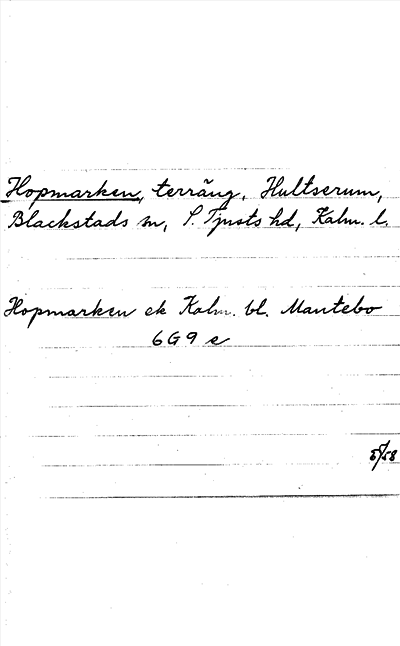 Hopmarken, terräng, Hultserum,
Blackstads sn, S. Tjusts hd, Kalm. l.
Hopmarken ek Kalm. bl. Mantebo
6G9e
5/58